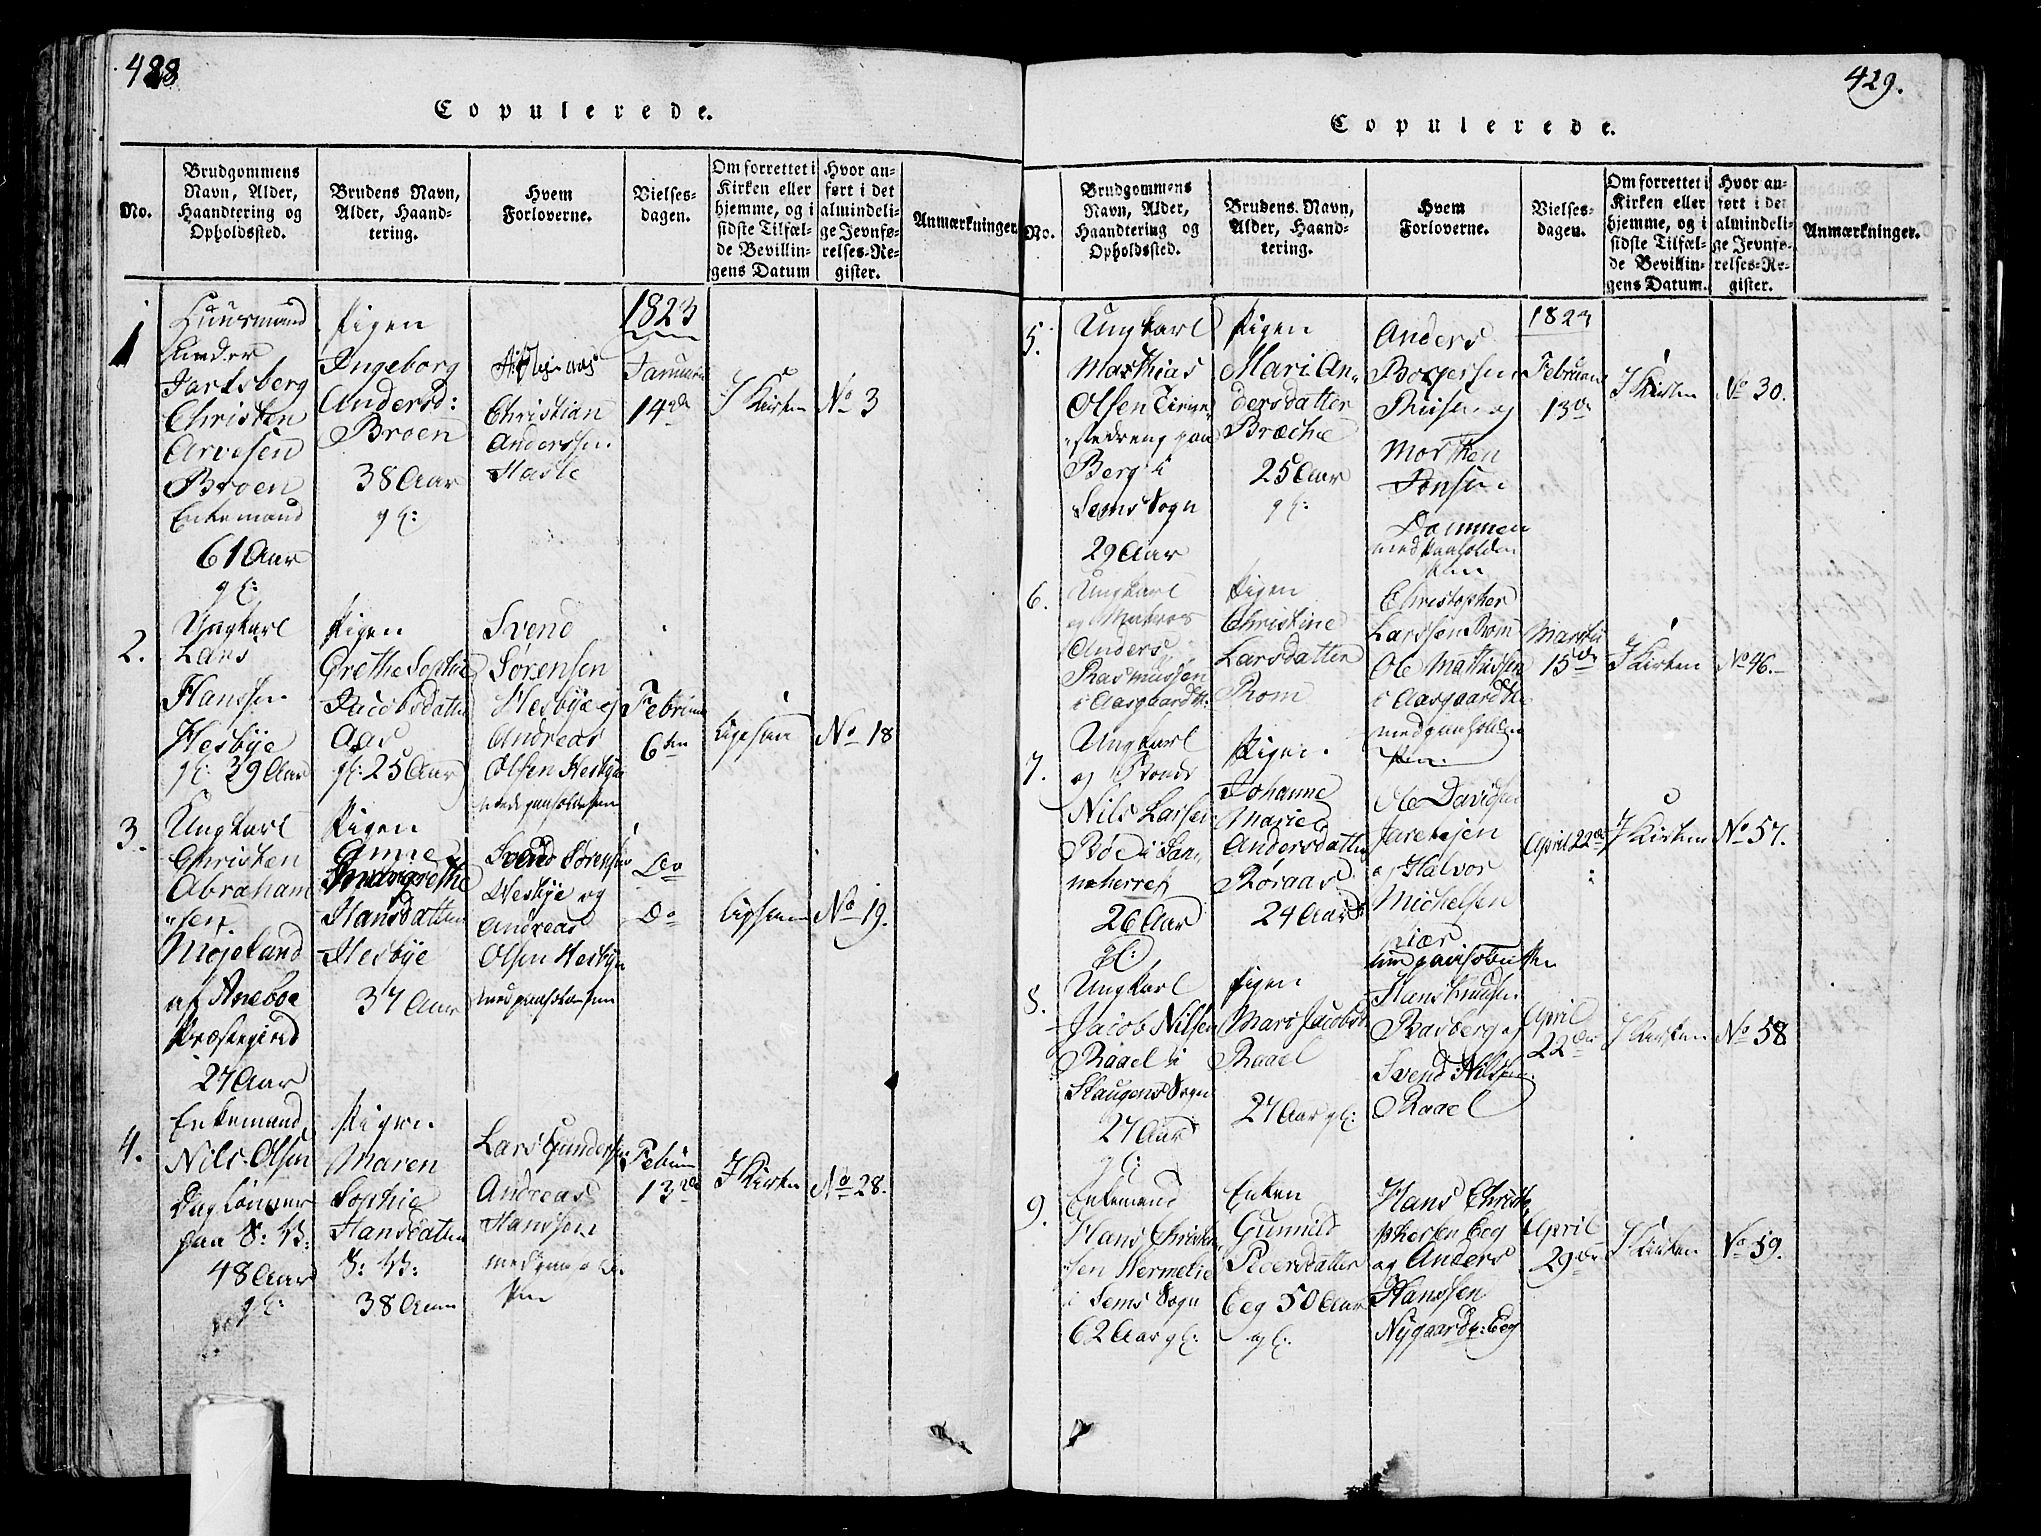 428
Copulerede.
No.
Brudgommens
Navn, Alder,
Haandtering og
Opholdssted.
Brudens Navn,
Alder, Haand-
tering.
Hvem
Forloverne.
Vielses-
dagen.
Om forrettet i
Kirken eller
hjemme, og i
sidste Tilfæl-
de Bevillin-
gens Datum
Hvor an-
ført i det
almindeli-
ge Jevnfø-
relses-Re-
gister.
Anmærkninger.
1
Huusmand
under
Jarlsberg
Christen
Arvesen
Broen
Enkemand
61 Aar
gl:
Pigen
Ingeborg
Andersd:
Broen
38 Aar
gl:
Christian
Anderssen
Hasle
1823
Januari
14de
I Kirken
No 3
2.
Ungkarl
Lars
Hanssen
Hesbye
gl: 29 Aar
Pigen
Grethe Sophie
Jacobsdatter
Aas
gl: 25 Aar
Svend
Sørensen
Hesbye og
Andreas
Olsen Hesbye
med paaholden Pen
Februar
6ten
Ligesaa
No 18
3.
Ungkarl
Christen
Abraham
sen
Mojeland
af Aneboe
Præstegield
27 Aar
Pigen
Anne
Margrethe
Hansdatter
Hesbye
37 Aar
Svend Sørensen
Hesbye og
Andreas
Olsen Hesbye
med paaholden Pen
Do
Do
Ligesaa
No 19.
4.
Enkemand
Nils Olsen
Daglønner
paa S: W:
48 Aar
gl:
Pigen
Maren
Sophie
Hansdatter
S: W:
38 Aar
Lars Gundersen
Andreas
Hanssen
med paahol-
Pen
Februar
13de
I Kirken
No 28.
429.
Copulerede.
No.
Brudgommens
Navn, Alder,
Haandtering og
Opholdssted.
Brudens Navn,
Alder, Haand-
tering.
Hvem
Forloverne.
Vielses-
dagen.
Om forrettet i
Kirken eller
hjemme, og i
sidste Tilfæl-
de Bevillin-
gens Datum.
Hvor an-
ført i det
almindeli-
ge Jevnfø-
relses-Re-
gister.
Anmærkninger.
5.
Ungkarl
Mathias
Olsen Tiene-
stedreng paa
Berg i
Sems Sogn
29 Aar
Pigen
Mari An-
dersdatter
Bræche
25 Aar
gl:
Anders
Borgersen
og
Morthen
Jonsen
Dammen
med paaholden
Pen
1823
Februar
13de
I Kirken
No 30.
6.
Ungkarl
og Matros
Anders
Rasmussen
i Aasgaards:
Pigen
Christine
Larsdatter
Rom
Christopher
Larssen Rom
Ole Mathissen
i Aasgaards
med paaholden
Pen
Martii
15de
I Kirken
No 46.
7.
Ungkarl
og Bonde
Nils Larsen
Bøe i San-
neherret
26 Aar
gl:
Pigen
Johanne
Marie
Andersdatter
Røraas
24 Aar
Ole Davidsen
Jareteien
og Halvor
Michelsen
med paaholden Pen
April 22de
I Kirken
No 57.
8.
Ungkarl
Jacob Nilsen
Raael i
Slaugens Sogn
27 Aar
gl:
Pigen
Mari Jacobsd
Raael
27 Aar gl:
Hans Knudsen
Basberg og
Svend Nilssen
Raael
April
22de
I Kirken
No 58
9.
Enkemand
Hans Christen
sen Hermelie
i Sems Sogn
62 Aar gl:
Enken
Gunnild
Pedersdatter
Eeg 50 Aar
gl:
Hans Christo
phersen Eeg
og Anders
Hanssen
Nygaard p: Eeg
April
29de
I Kirken
No 59.